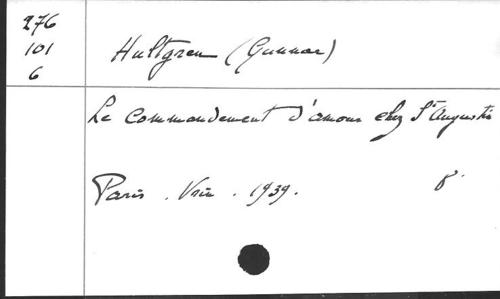 276
101
6
Hultgren (Gunnar)
Le Commandement d'amour chez St Augustin
Paris . Vrin . 1939. 8°